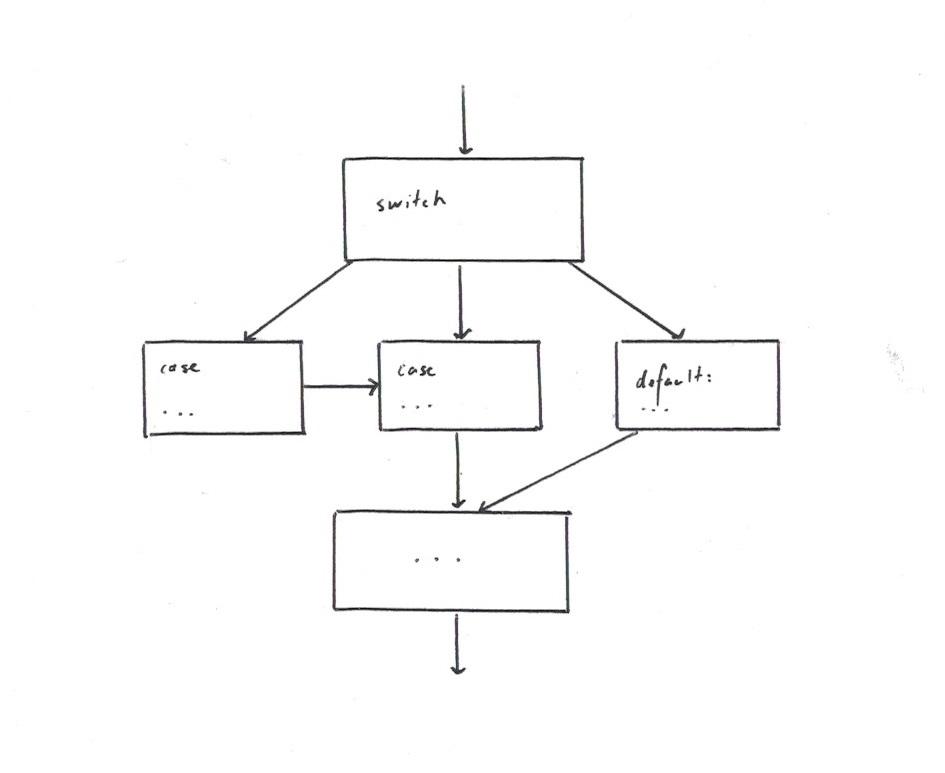 switch
case
...
case
...
default:
...
...